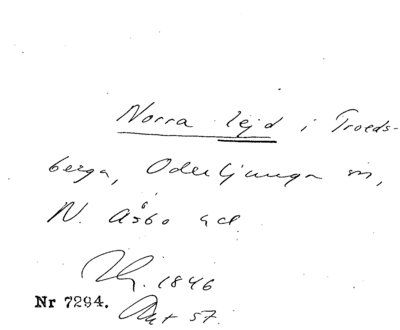 Norra lejd i Troeds-
berga, Oderljunga sn,
N. Åsbo hd.
1846
Nr 7294. Akt 57.